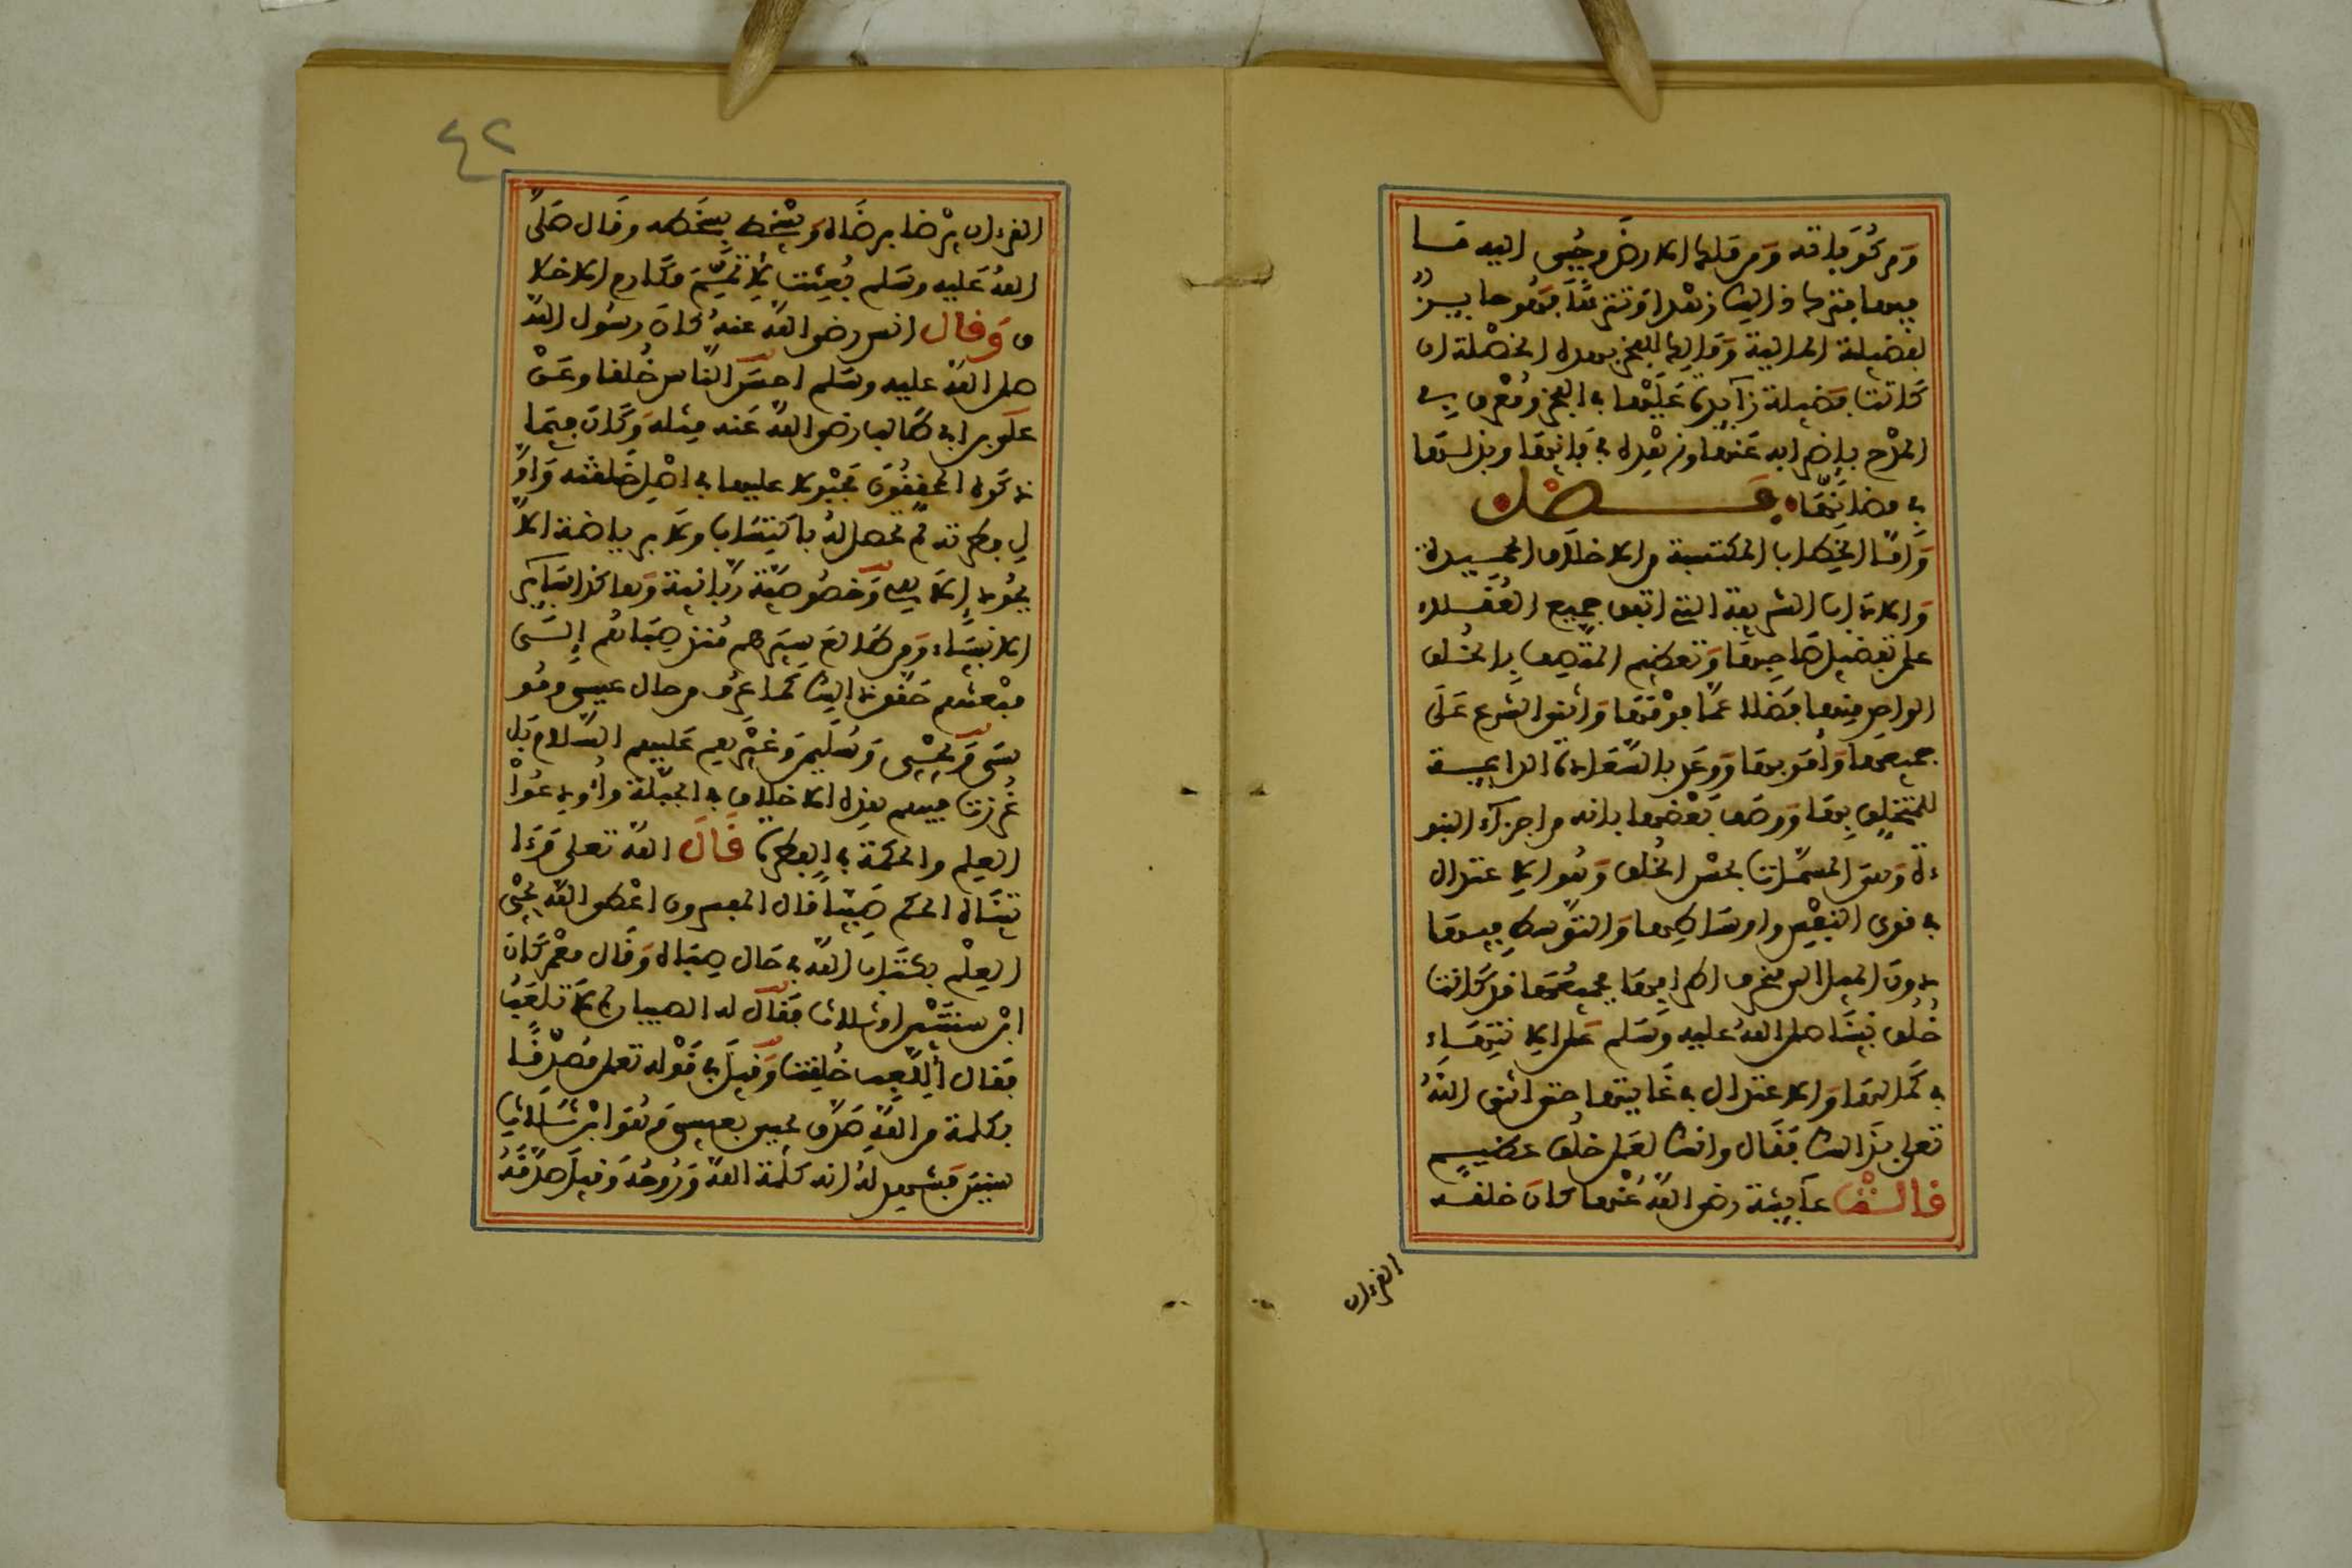 ومركوباته ومن ملك الارض وجبي اليه ما
فيها فترك ذالك زهدا وتنزها فهو حايز
لفضيلة المالية ومالك للفخر بهذه الخصلة ان
كانت فضيلة زآيد عليها في الفخر ومعرق في
المدح باضرابه عنها وزهده في فانيها وبذلها
في مظانها فصل
واما الخصال المكتسبة من الاخلاق الحميدة
والاداب الشريفة التي اتفق جميع العقلاء
على تفضيل صاحبها وتعظيم المتصف بالخلق
الواحد منها فضلا عما فوقها واثنى الشرع على
جميعها وامر بها ووعد بالسعادة الدايمة
للمتخلق بها ووصف بعضها بانه من اجزاء النبو
ءة وهي المسمات بحسن الخلق وهو الاعتدال
في قوى النفس واوصافها والتوسط فيها
دون الميل الى منحرف اطرافها فجميعها قد كانت
خلق نبينا صلى الله عليه وسلم على الانتهاء
في كمالها والاعتدال في غايتها حتى اثنى الله
تعلى بذالك فقال وانك لعلى خلق عظيم
قالت عآيشة رضي الله عنها كان خلقه
القرءان
٤٢
القرءان يرضا برضاه ويسخط بسخطه وقال صلى
الله عليه وسلم بعثت لاتمم مكارم الاخلا
ق وقال انس رضي الله عنه كان رسول الله
صلى الله عليه وسلم احسن الناس خلقا وعن
علي بن ابي طالب رضي الله عنه مثله وكان فيما
ذكره المحققون مجبولا عليها في اصل خلقته واو
ل فطرته لم تحصل له باكتساب ولا برياضة الا
بجود الاهي وخصوصية ربانية وهاكذا لساير
الانبياء ومن طالع سيرهم منذ صباهم الى
مبعثهم حقق ذالك كما عرف من حال عيسى ومو
سى ويحيى وسليمن وغيرهم عليهم السلام بل
غرزت فيهم هذه الاخلاق في الجبلة واودعوا
العلم والحكمة في الفطرة قال الله تعلى وءا
تيناه الحكم صبيا قال المفسرون اعطى الله يحيى
العلم بكتاب الله في حال صباه وقال معمر كان
ابن سنتين او ثلاث فقال له الصبيان لم لا تلعب
فقال أللعب خلقت وقيل في قوله تعلى مصدقا
بكلمة من الله صدق يحيى بعيسى وهو ابن ثلاث
سنين فشهد له انه كلمة الله وروحه وقيل صدقه